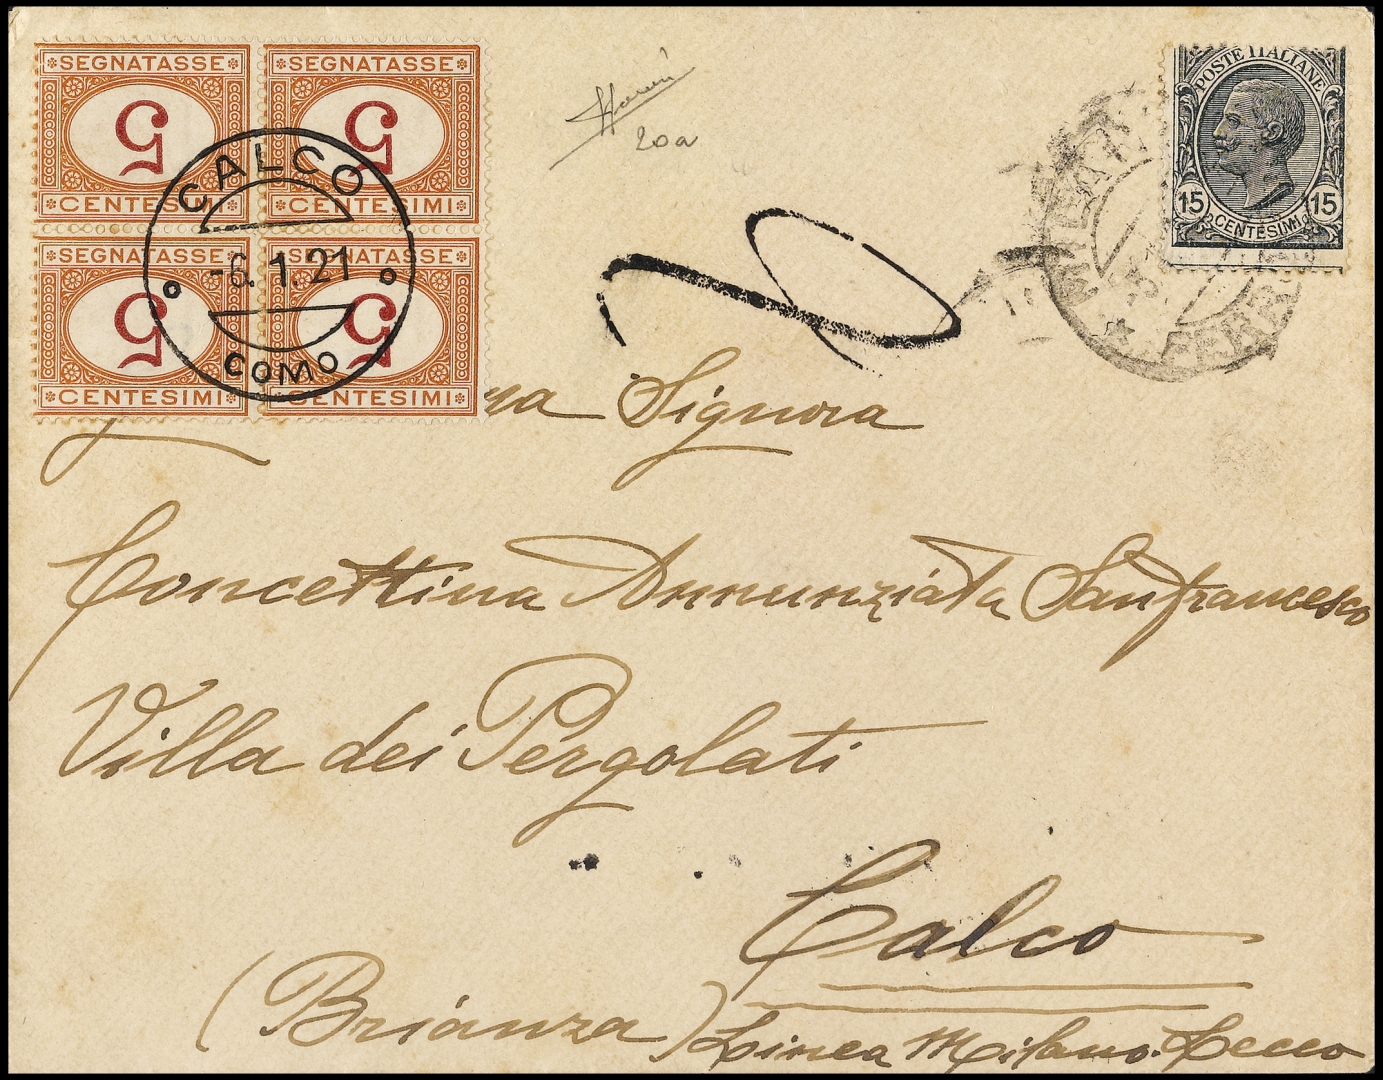 SEGNATASSE SEGNATASSE
5 5
CENTESIMI CENTESIMI
SEGNATASSE SEGNATASSE
5 5
CENTESIMI CENTESIMI
CALCO
-6.1.21
COMO
20a
POSTE ITALIANE
15 CENTESIMI 15
MILANO
FERR
Signora
Concettina Annunziata Sanfrancesco
Villa dei Pergolati
Calco
(Brianza) Linea Milano-Lecco